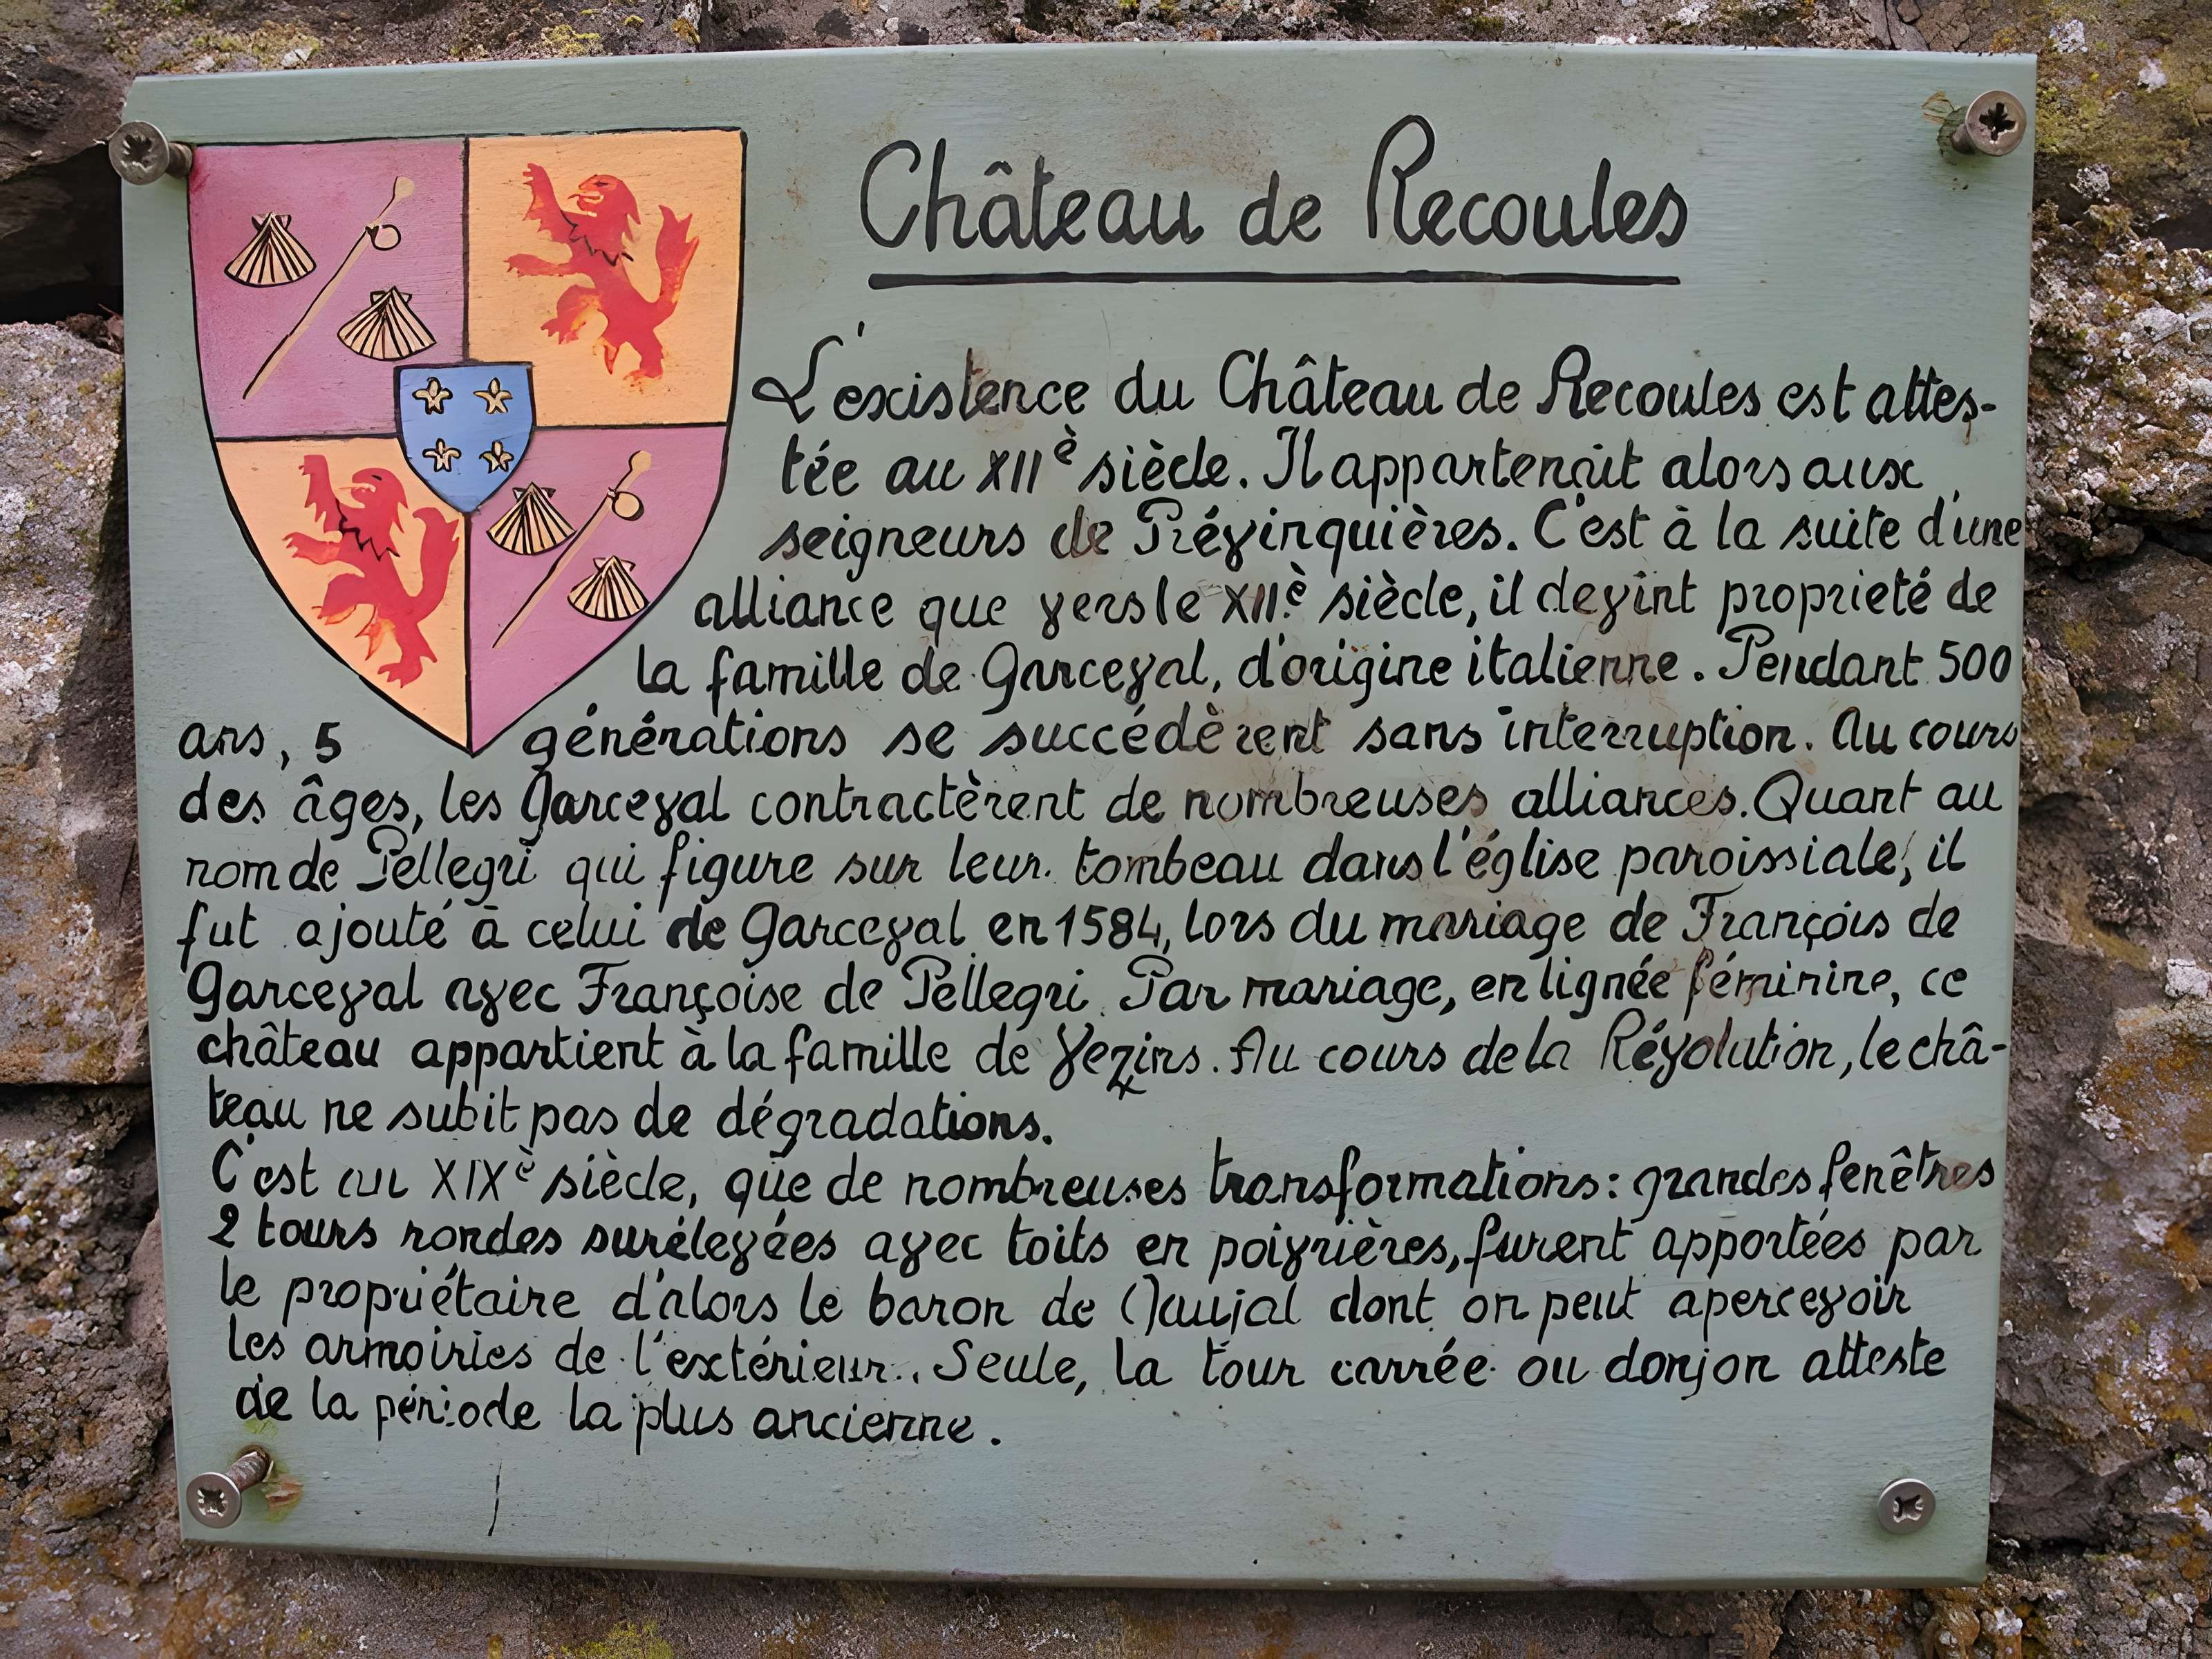 Château de Recoules
L'existence du Château de Recoules est attes-
tée au XIIè siècle. Il appartenait alors aux
seigneurs de Prévinquières. C'est à la suite d'une
alliance que vers le XIIè siècle, il devint proprieté de
la famille de Garceval, d'origine italienne. Pendant 500
ans, 5 générations se succédèrent sans interruption. Au cours
des âges, les Garceval contractèrent de nombreuses alliances. Quant au
nom de Pellegri qui figure sur leur tombeau dans l'église paroissiale, il
fut ajouté à celui de Garceval en 1584, lors du mariage de François de
Garceval avec Françoise de Pellegri. Par mariage, en lignée féminine, ce
château appartient à la famille de Vezins. Au cours de la Révolution, le châ-
teau ne subit pas de dégradations.
C'est au XIXè siècle, que de nombreuses transformations: grandes fenêtres
2 tours rondes surélevées avec toits en poivrières, furent apportées par
le propriétaire d'alors le baron de Gaujal dont on peut apercevoir
les armoiries de l'extérieur. Seule, la tour carrée ou donjon atteste
de la période la plus ancienne.